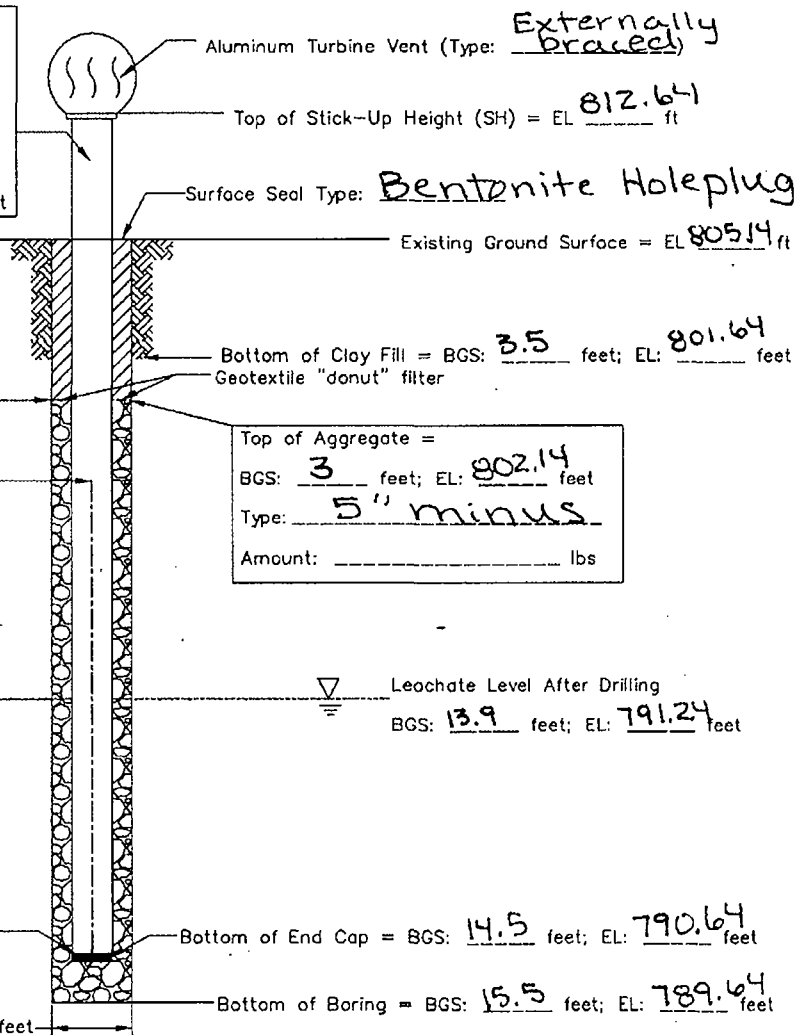 Aluminum Turbine Vent (Type: Externally braced)
Top of Stick-Up Height (SH) = EL 812.641 ft
t
Surface Seal Type: Bentonite Holeplug
Existing Ground Surface = EL 805.14 ft
Bottom of Clay Fill = BGS: 3.5 feet; EL: 801.64 feet
Geotextile "donut" filter
Top of Aggregate =
BGS: 3 feet; EL: 802.14 feet
Type: 5" minus
Amount: lbs
Leachate Level After Drilling
BGS: 13.9 feet; EL: 791.24 feet
Bottom of End Cap = BGS: 14.5 feet; EL: 790.64 feet
Bottom of Boring = BGS: 15.5 feet; EL: 789.64 feet
feet